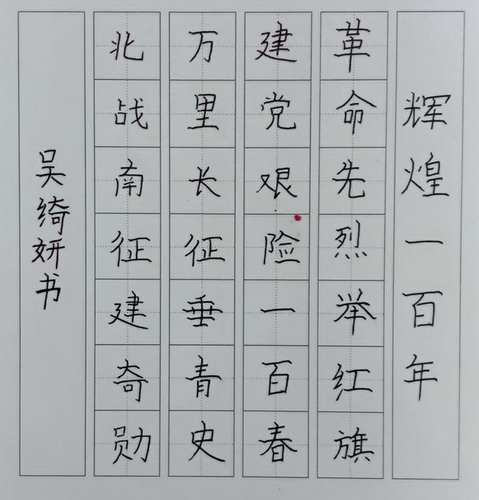 辉煌一百年
革命先烈举红旗
建党艰险一百春
万里长征垂青史
北战南征建奇勋
吴绮妍书